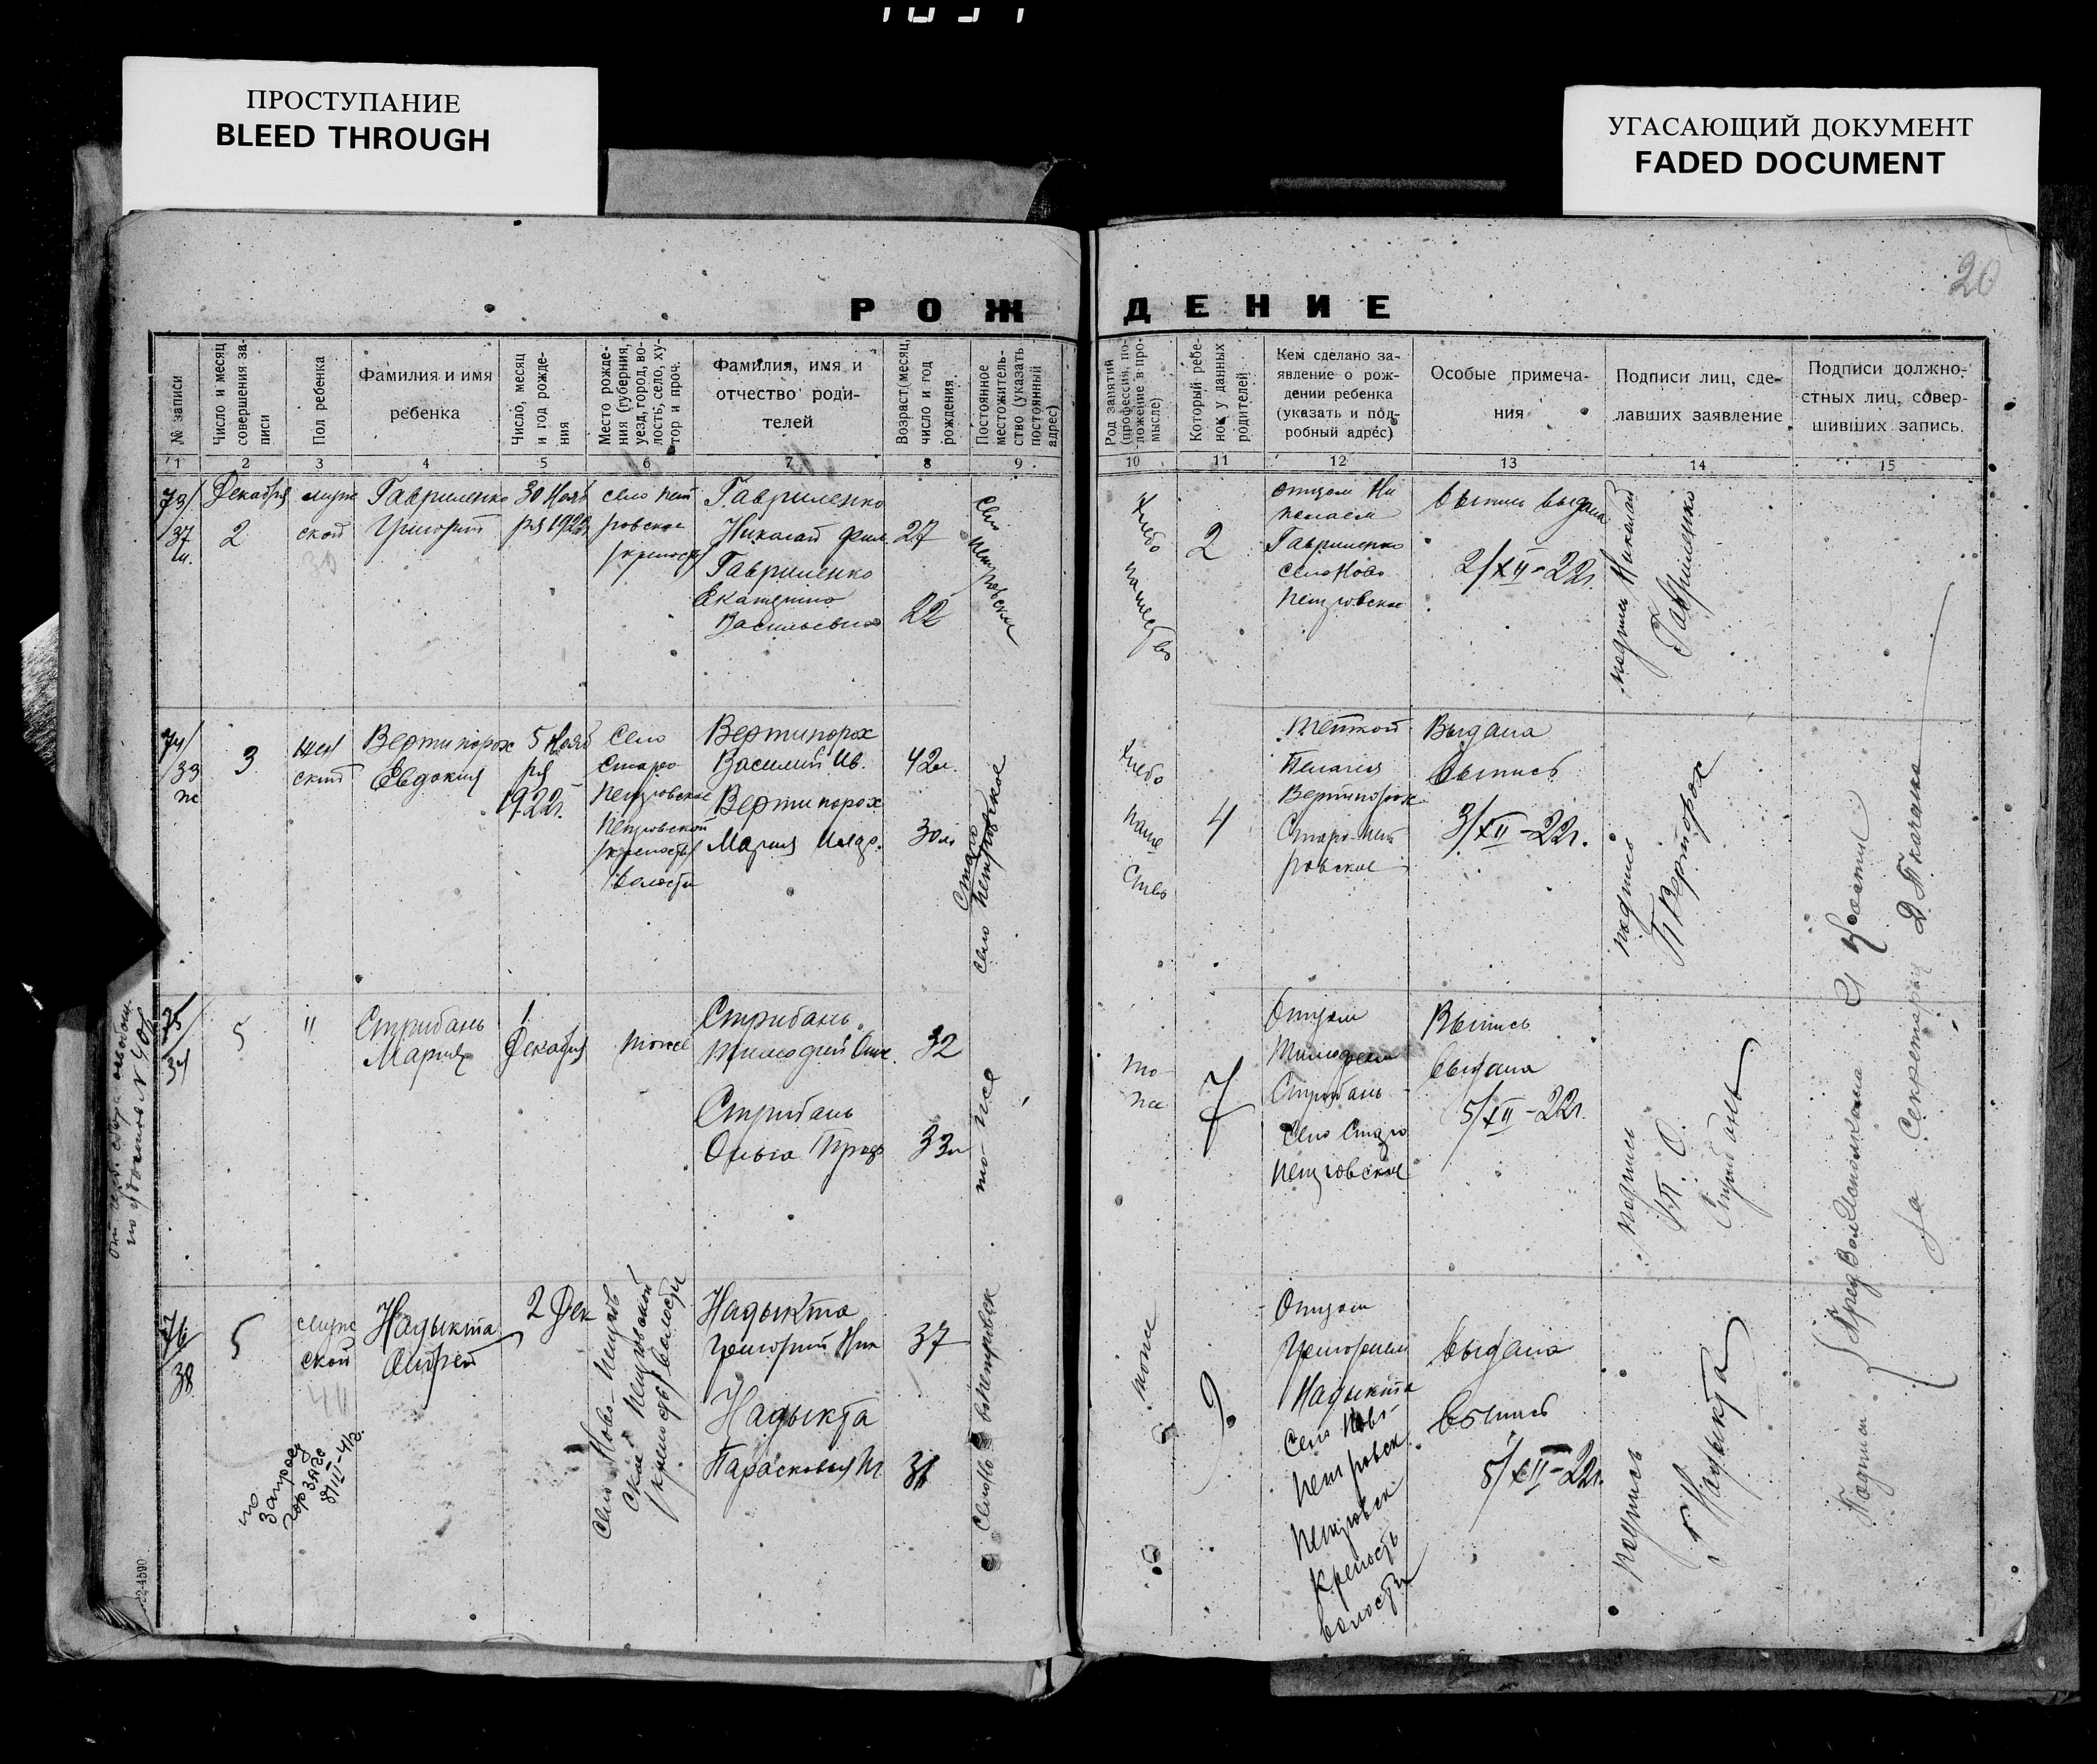 ПРОСТУПАНИЕ
BLEED THROUGH
УГАСАЮЩИЙ ДОКУМЕНТ
FADED DOCUMENT
20
РОЖДЕНИЕ
№ записи
Число и месяц
совершения за-
писи
Пол ребенка
Фамилия и имя
ребенка
Число, месяц
и год рожде-
ния
Место рожде-
ния (губерния,
уезд, город, во-
лость, село, ху-
тор и проч.
Фамилия, имя и
отчество роди-
телей
Возраст (месяц,
число и год
рождения
Постоянное
местожитель-
ство (указать
постоянный
адрес)
Род занятий
(профессия, по-
ложение в про-
мысле)
Который ребе-
нок у данных
родителей
Кем сделано за-
явление о рож-
дении ребенка
(указать и под-
робный адрес)
Особые примеча-
ния
Подписи лиц, сде-
лавших заявление
Подписи должно-
стных лиц, совер-
шивших запись.
1 2 3 4 5 6 7 8 9 10 11 12 13 14 15
73/
37
м.
Декабря
2
мужс
ской
Гавриленко
Григорий
30 Нояб
ря 1922г
село Пет
ровское
крепость
Гавриленко
Николай Фил.
27
Гавриленко
Екатерина
Васильевна
22
село Петровское
Хлебо
пашество
2
отцом Ни
колаем
Гавриленко
село Ново
Петровское
выпись выдана
2/XII-22г.
подпись Николай
Гавриленко
74/
33
ж
3
жен
ский
Вертипорох
Евдокия
5 Нояб
ря
1922г.
село
Старо
Петровское
Петровской
крепости
волости
Вертипорох
Василий Ив.
42л.
Вертипорох
Мария
30л
село Старо Петровское
Хлебо
паше
ство
4
теткой
Пелагея
Вертипорох
Старо-Пет
ровское
Выдана
выпись
3/XII-22г.
подпись
П Вертпорох
75/
34
5
"
Стрибань
Мария
1
Декабря
тоже
Стрибань
Тимофей
32
Стрибань
Ольга
33л
то-же
то-
же
7
Отцом
Тимофеем
Стрибань
село Старо
Петровское
Выпись
выдана
5/XII-22г.
подпись
Стрибань
76/
38
5
мужс
ской
Надыкта
Андрей
2 Дек
село Ново-Петров
ское Петровской
крепость волости
Надыкта
Григорий Ник
37
Надыкта
Парасковья
31
тоже
9
Отцом
Григорием
Надыкта
село Ново-
петровск
Петровск
крепость
волости
выдана
выпись
5/XII-22г.
подпись
Г Надыкта
Подписи
Пред ВолИсполкома
За Секретаря Д. Ткачанка
по
запросу
гор ЗАГС
8/II-41г.
22-4590